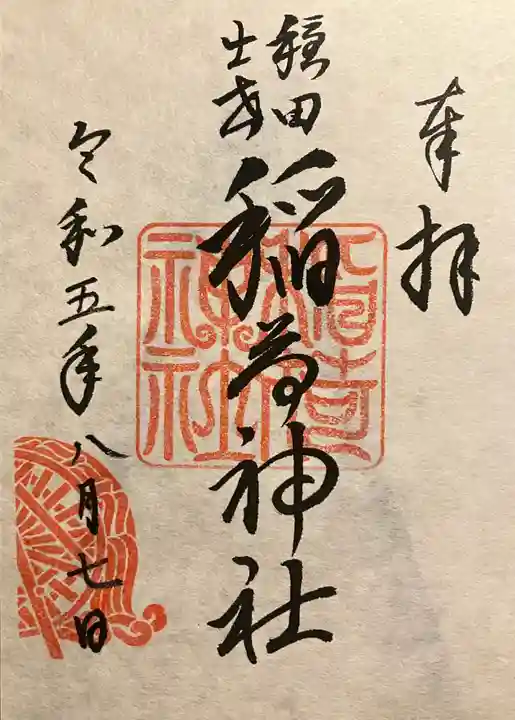 奉拝
出世
稲荷神社
令和五年八月七日
稲荷神社